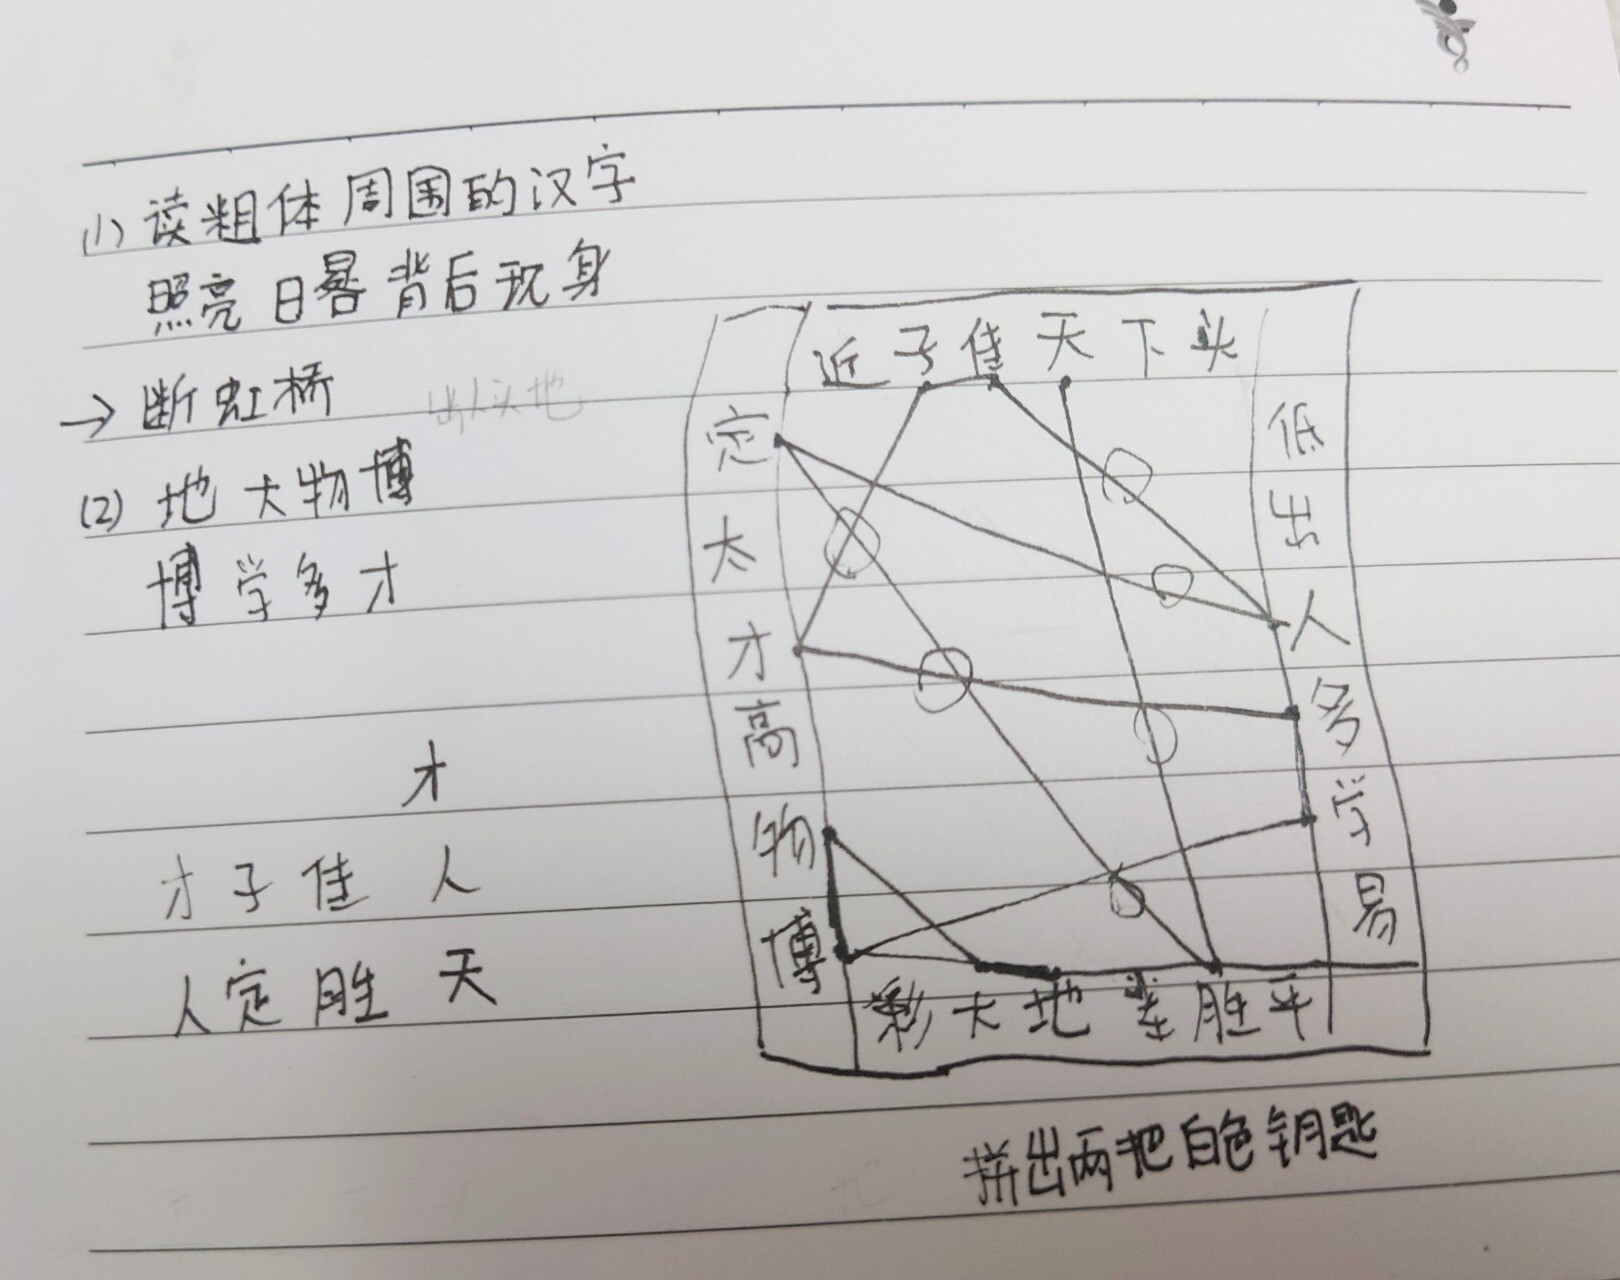 (1) 读粗体周围的汉字
照亮日晷背后现身
→ 断虹桥
出人头地
(2) 地大物博
博学多才
才
才子佳人
人定胜天
近子佳天下头
定
太
才
高
物
博
低
出
人
多
学
易
彩大地差胜平
拼出两把白色钥匙